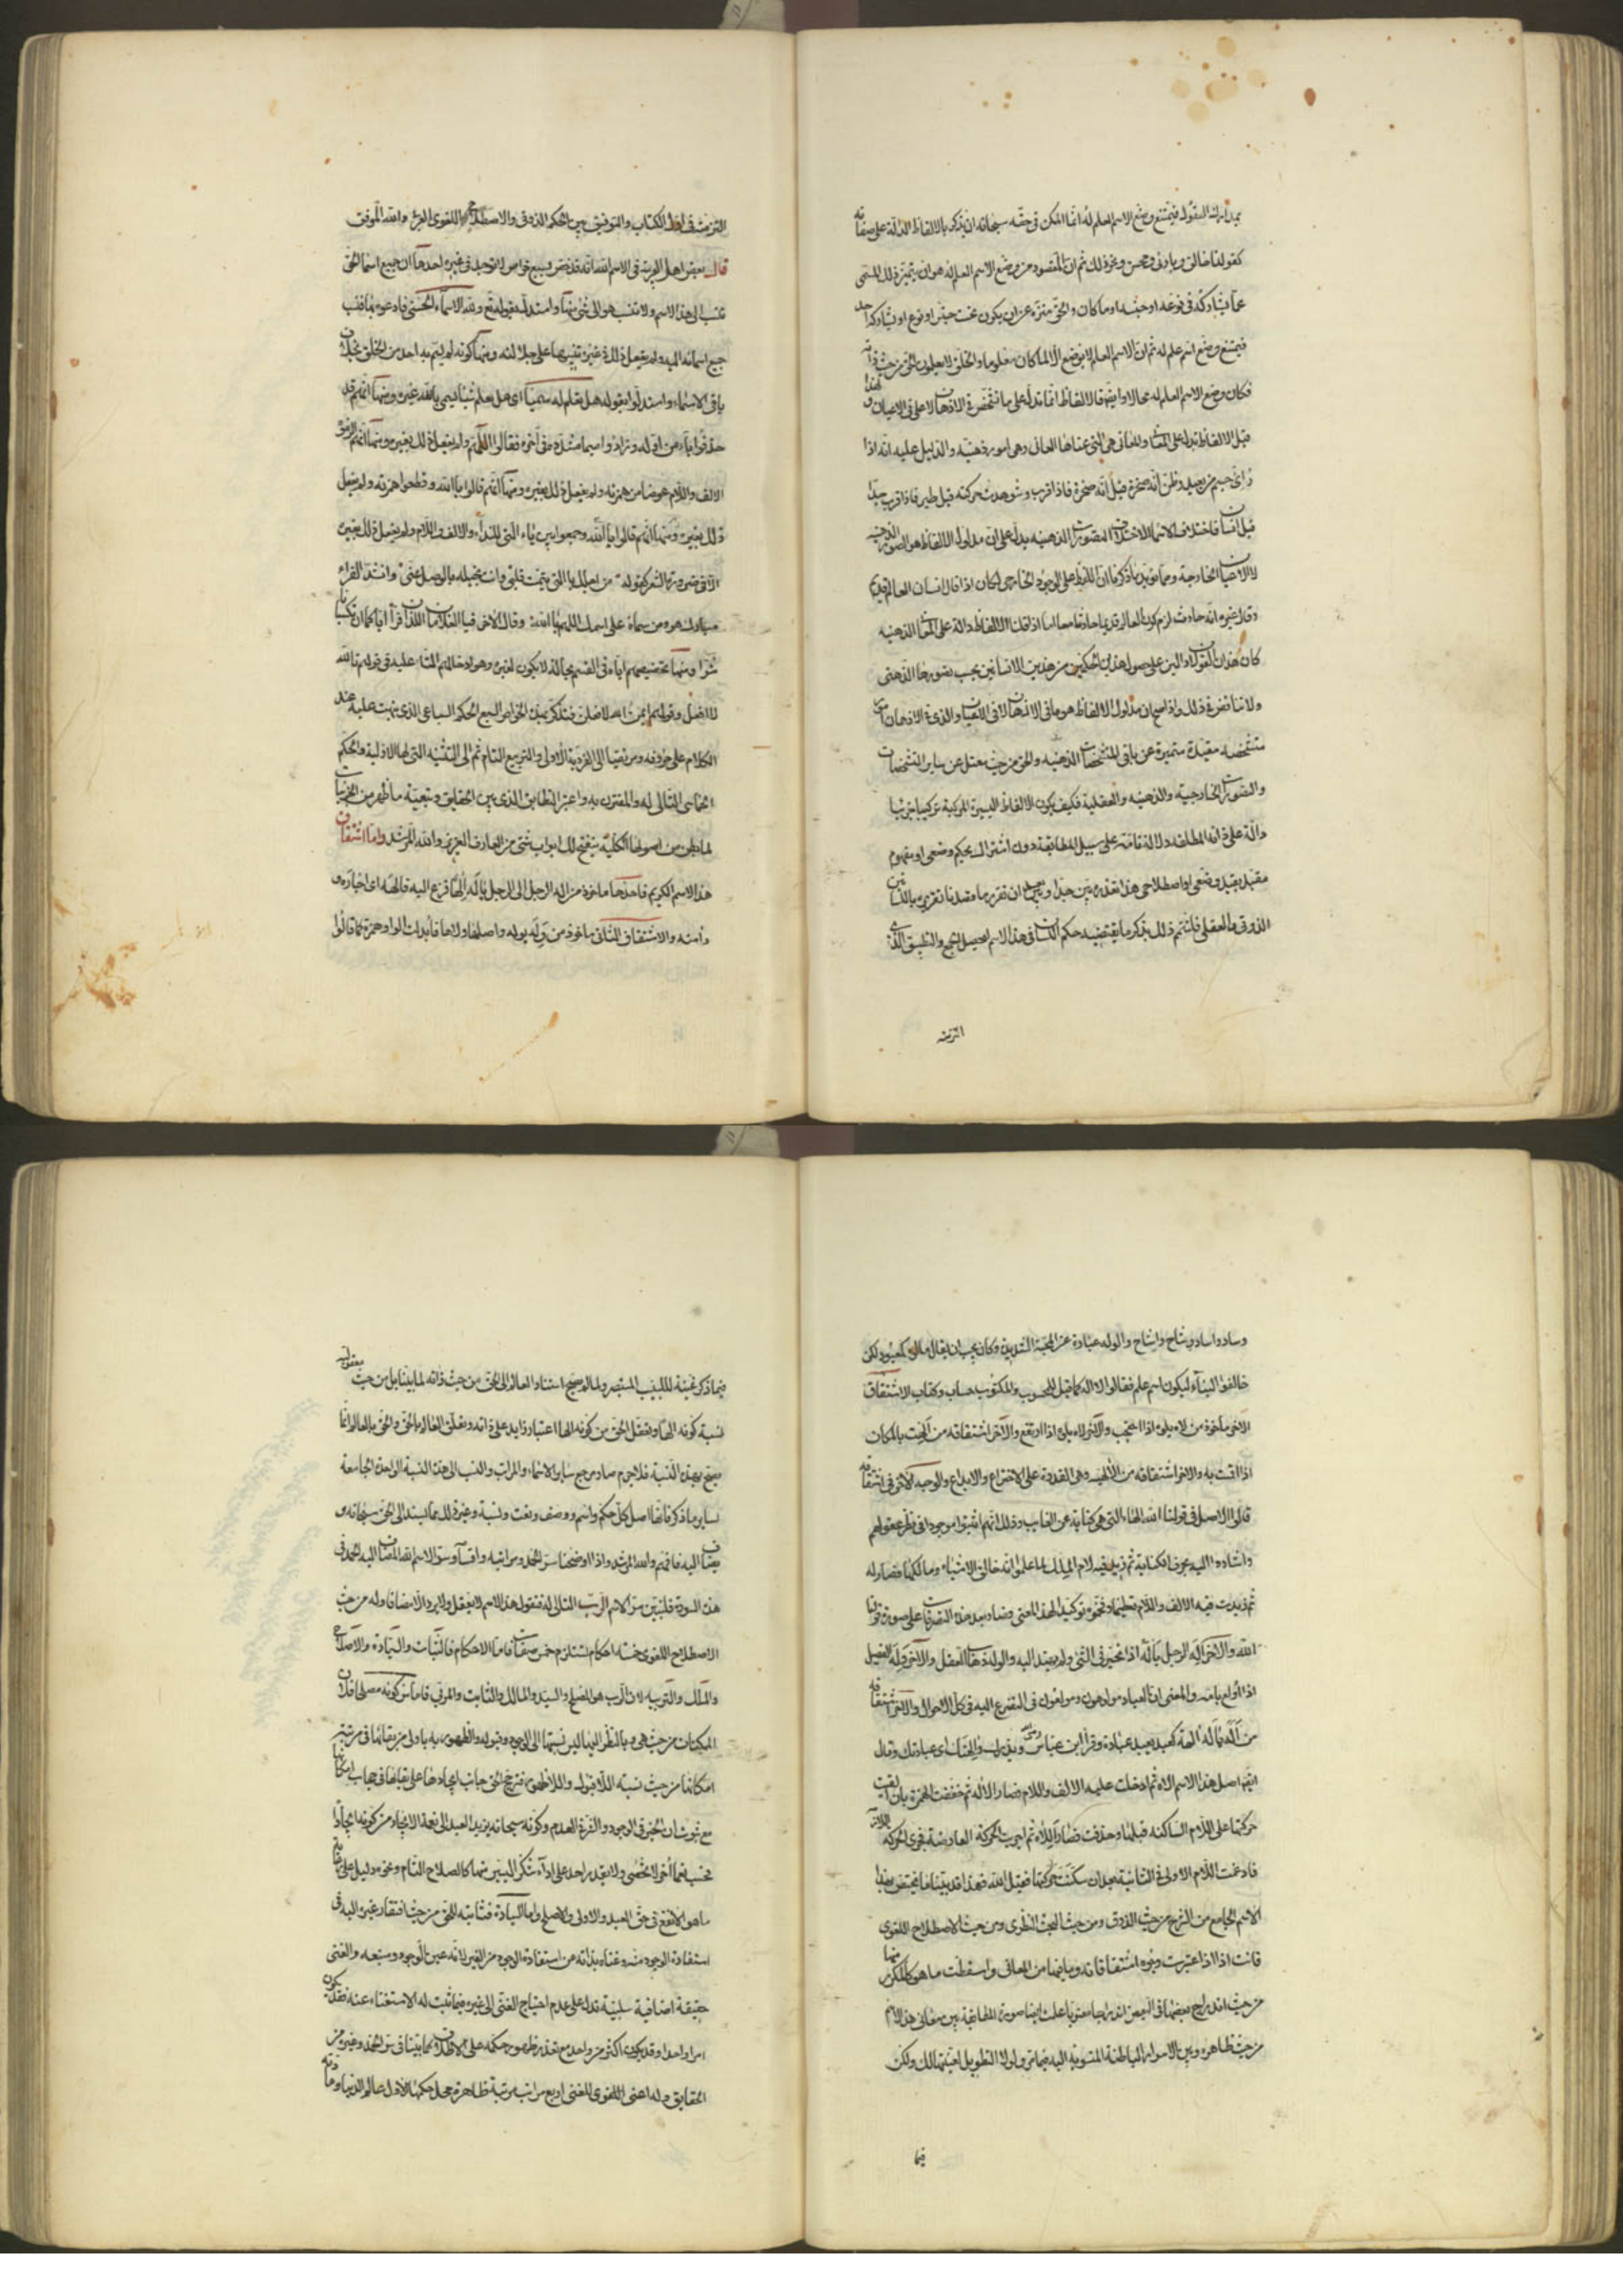 كقولنا خالق وبارئ ومحسن ونحو ذلك ثم ان المقصود من وضع الاسم العلم هو ان يتميز ذلك المسمى
عما يشاركه في نوعه او جنسه او ما كان والحق منزه عن ان يكون تحت جنس او نوع او يشاركه احد
فيمتنع وضع اسم علم له ثم ان الاسم العلم لا يوضع الا لما كان معلوما والخلق لا يعلمون الحق من حيث ذاته
فكان وضع الاسم العلم له محالا وايضا فالالفاظ انما تدل على ما تشخص في الاذهان لا على ما في الاعيان ولهذا
قيل الالفاظ تدل على المعاني والمعاني هي التي عناها العاني وهي امور ذهنية والدليل عليه انه اذا
رأى جسم من بعيد وظن انه صخرة قيل انه صخرة فاذا قرب وشوهدت حركته قيل طير فاذا قرب جدا
قيل انسان فاختلاف الاسماء لاختلاف التصورات الذهنية يدل على ان مدلول الالفاظ هو الصور الذهنية
لا الاعيان الخارجية ومما يؤيد ما ذكرنا ان اللفظ لو دل على الموجود الخارجي لكان اذا قال انسان العالم قديم
وقال غيره انه حادث لزم كون العالم قديما حادثا معا اما اذا قلنا الالفاظ دالة على المعاني الذهنية
كان هذان القولان دالين على حصول هذين الحكمين من هذين الانسانين بحسب تصورهما الذهني
ولا تناقض في ذلك واذا صح ان مدلول الالفاظ هو ما في الاذهان لا في الاعيان والذي في الاذهان امور
متشخصة مقيدة متميزة عن باقي المتشخصات الذهنية والحق من حيث يعتلي عن ساير التشخصات
والتصورات الخارجية والذهنية والعقلية فكيف يكون الالفاظ اليسيرة المركبة تركيبا جزئيا
دالة على ذاته المطلقة دلالة تامة على سبيل المطابقة دون اشتراك بحكم وضعي او مفهوم
مقيد بقيد وضعي او اصطلاحي هذا تعذره بين جدا وبعد ان تقرر ما قصدنا تقريره باللسانين
الذوقي والعقلي فلنتمم ذلك بذكر ما يقتضيه حكم اللسان في هذا الاسم ليحصل الجمع والتطبيق الذي
التزمته
التزمته في اول الكتاب والتوفيق بين الحكم الذوقي والاصطلاح اللغوي العربي والله الموفق
قال بعض اهل العربية في الاسم الله انه قد خص بسبع خواص لا توجد في غيره احدها ان جميع اسماء الحق
تنسب الى هذا الاسم ولا ينسب هو الى شيء منها واستدل بقوله تع ولله الاسماء الحسنى فادعوه بها فنسب
جميع اسمائه اليه ولم يفعل ذلك بغيره تنبيها على جلالته ومنها كونه لم يتسم به احد من الخلق بخلاف
باقي الاسماء واستدلوا بقوله هل تعلم له سميا اى هل تعلم شيئا يسمى بالله غيره ومنها انهم
حذفوا ياء من اوله وزادوا ميما مشددة في آخره فقالوا اللهم ولم يفعل ذلك بغيره ومنها انهم الزموه
الالف واللام عوضا من همزته ولم يفعل ذلك بغيره ومنها انهم قالوا يا الله وقطعوا همزته ولم يفعل
ذلك بغيره ومنها انهم قالوا يا الله وجمعوا بين ياء التي للنداء والالف واللام ولم يفعل ذلك بغيره
الا في ضرورة الشعر كقوله من اجلك يا التي تيمت قلبي وانت بخيلة بالوصل عني وانشد الفراء
مبارك هو ومن سماه على اسمك اللهم يا الله وقال الآخر فيا الغلامان اللذان فرا اياكما ان تكسبانا
شرا ومنها تخصيصهم اياه في القسم بحالة لا يكون لغيره وهو ادخالهم التاء عليه في قولهم تالله
لا افعل وقولهم ايمن الله لافعلن فتذكر بهذه الخواص السبع الحكم السباعي الذي نبهت عليه عند
الكلام على حروفه ومن تقيها الى الفردية الاولى والتربيع التام ثم الى التثنية التي لها الاولية والحكم
الخماسي التالي له والمقترن به واعتبر التطابق الذي بين الحقايق وتبعية ما ظهر من الجزئيات
لما بطن من اصولها الكلية ينفتح لك ابواب شتى من المعارف العزيزة والله المرشد واما اشتقاق
هذا الاسم الكريم فاحدها ماخوذ من اله الرجل الى الرجل يأله الها فزع اليه فآلهه اى اجاره و
وأمنه والاشتقاق الثاني ماخوذ من وله يوله واصله ولاه فأبدلت الواو همزة كما قالوا
وسادة اسادة ووشاح واشاح والوله عبارة عن المحبة الشديدة وكان يجب ان يقال مالوه كمعبود لكن
خالفوا البناء ليكون اسم علم فقالوا اله كما قيل للمحسوب والمكتوب حساب وكتاب الاشتقاق
الآخر ماخوذ من لاه يلوه اذا احتجب والآخر لاه يلوه اذا ارتفع والآخر اشتقاقه من الهت بالمكان
اذا اقمت به والآخر اشتقاقه من الالهية وهي القدرة على الاختراع والابداع والوجه الآخر في اشتقاقه
قالوا الاصل في قولنا الله الهاء التي هي كناية عن الغايب وذلك انهم اثبتوا موجودا في نظر عقولهم
واشاروا اليه بحرف الكناية ثم زيد فيه لام الملك لما علموا انه خالق الاشياء ومالكها فصار له
ثم زيدت فيه الالف واللام تعظيما وفخموه توكيدا لهذا المعنى فصار بعد هذه التصرفات على صورة قولنا
الله والآخر اله الرجل يأله اذا تحير في الشيء ولم يهتد اليه والوله ذهاب العقل والآخر وله الفصيل
اذا اولع بامه والمعنى ان العباد مولهون ومولعون في التضرع اليه في كل الاحوال والآخر اشتقاقه
من اله يأله الهة كعبد يعبد عبادة وقرأ ابن عباس رضي ويذرك والاهتك اى عبادتك وقال
ايضا اصل هذا الاسم الاه ثم ادخلت عليه الالف واللام فصار الالاه ثم خففت الهمزة بان القيت
حركتها على اللام الساكنة قبلها وحذفت فصار اللاه ثم اجريت الحركة العارضية مجرى الحركة اللازمة
فادغمت اللام الاولى في الثانية بعد ان سكنت حركتها فقيل الله فهذا قد بينا ما يختص بهذا
الاسم الجامع من الشرح من حيث الذوق ومن حيث البحث النظري ومن حيث الاصطلاح اللغوي
فانت اذا اعتبرت وجوه اشتقاقاته وما فيها من المعاني واسقطت ما هو كالمكرر منها
من حيث اندراج بعضها في البعض اندراجا معنويا علمت ايضا صورة المطابقة بين معاني هذا الاسم
من حيث ظاهره وبين الاسرار الباطنة المنسوبة اليه فيما مر ولولا التطويل لعينتها لك ولكن
فيما
فيما ذكر غنية للبيب المستبصر ولما لم يصح استناد العالم الى الحق من حيث ذاته لما بينا بل من حيث معقولية
نسبة كونه الها وتعقل الحق من كونه الها اعتبار زايد على ذاته وتعلق العالم بالحق والحق بالعالم انما
يصح بهذه النسبة فلا جرم صار مرجع ساير الاسماء والمراتب والنسب الى هذه النسبة الواحدة الجامعة
لساير ما ذكر فانها اصل كل حكم واسم ووصف ونعت ونسبة وغير ذلك مما يسند الى الحق سبحانه و
يضاف اليه فافهم والله المرشد واذا اوضحنا سر الحمد ومراتبه واقسامه وسر الاسم الله المضاف اليه الحمد في
هذه السورة فلنبين سر الاسم الرب التالي له فنقول هذا الاسم لا يعقل ولا يرد الا مضافا وله من حيث
الاصطلاح اللغوي خمسة احكام تستلزم خمس صفات فاما الاحكام فالثبات والسيادة والاصلاح
والملك والتربية لان الرب هو المصلح والسيد والمالك والثابت والمربي فاما سر كونه مصلحا فلان
الممكنات من حيث هي وبالنظر اليها ليس نسبتها الى الوجود وقبوله والظهور به باولى من بقائها في مرتبة
امكانها من حيث نسبة اللاقبول واللاظهور فترجيح الحق جانب ايجادها على بقائها في حجاب امكانها
مع ثبوت ان الخير في الوجود والشر في العدم وكونه سبحانه يزيد العبد الى نعمة الايجاد من كونه ايجادا
فحسب نعما أخر لا تحصى ولا يقدر احد على اداء شكر اليسير منها كالصلاح التام ونحوه دليل على رعايته
ما هو الانفع في حق العبد والاولى والاصلح واما السيادة فثابتة للحق من حيث افتقار غيره اليه في
استفادة الوجود منه وغناه بذاته من استفادة الوجود من الغير لانه عين الوجود ومنبعه والغنى
حقيقة اضافية سلبية تدل على عدم احتياج الغنى الى غيره فيما ثبت له الاستغناء عنه فقد يكون
امرا واحدا وقد يكون اكثر من واحد مع تعذر ظهور حكمه على الاطلاق كما بينا في سر الحمد وغيره من
الحقايق وله اعنى اللغوي للغنى اربع مراتب مرتبة ظاهرة محل حكمها الاول عالم الدنيا ومادته